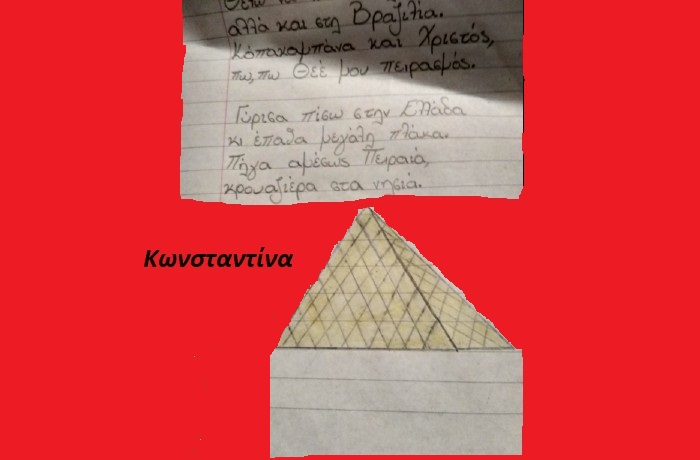 Θέλω να
αλλά και στη Βραζιλία.
Κόπακαμπάνα και Χριστός,
πω, πω Θεέ μου πειρασμός.
Γύρισα πίσω στην Ελλάδα
κι έπαθα μεγάλη πλάκα.
Πήγα αμέσως Πειραιά,
κρουαζιέρα στα νησιά.
Κωνσταντίνα